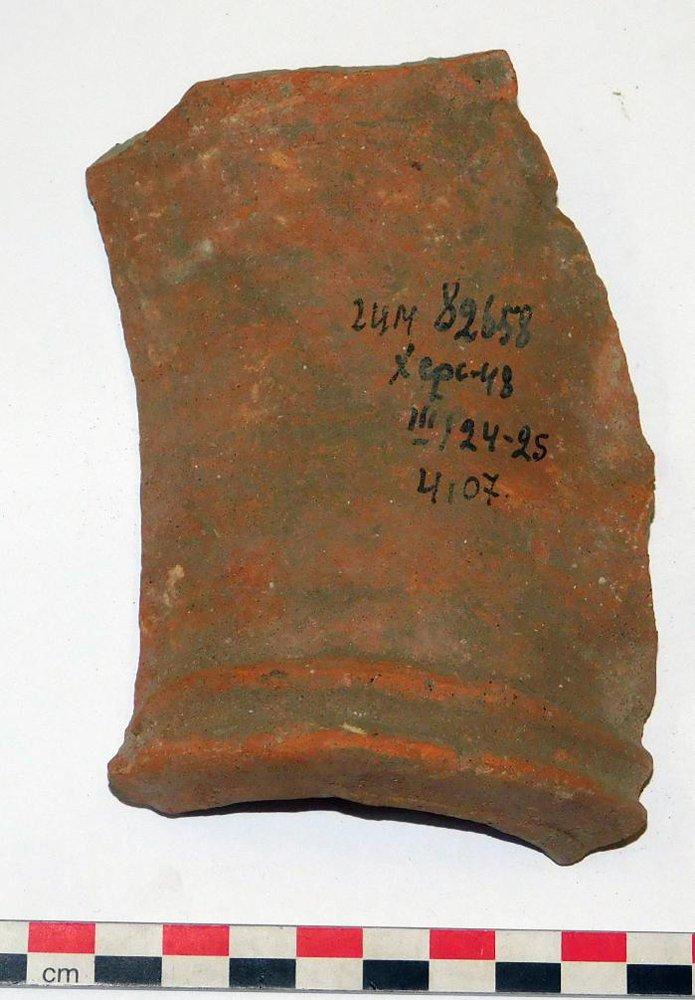 ГИМ 82658
Херс-48
III/24-25
4107.
cm